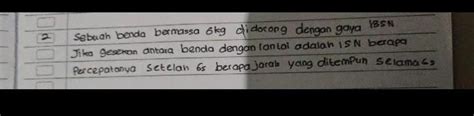 2 Sebuah benda bermassa 6kg didorong dengan gaya 185N
Jika gesekan antara benda dengan lantai adalah 15N berapa
Percepatanya setelah 6s berapa jarak yang ditempuh selama 6s